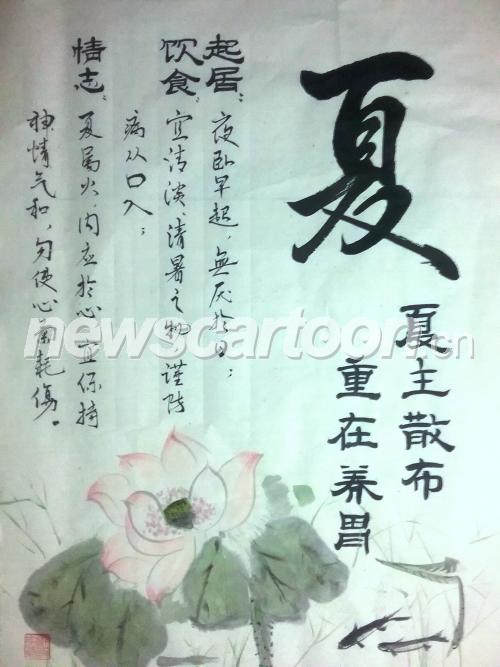 夏
夏主散布
重在养胃
起居：夜卧早起，無厌於日；
饮食：宜清淡、清暑之物，谨防
病从口入；
情志：夏属火，内应於心，宜保持
神情气和，勿使心耗傷。
newscartoon.cn